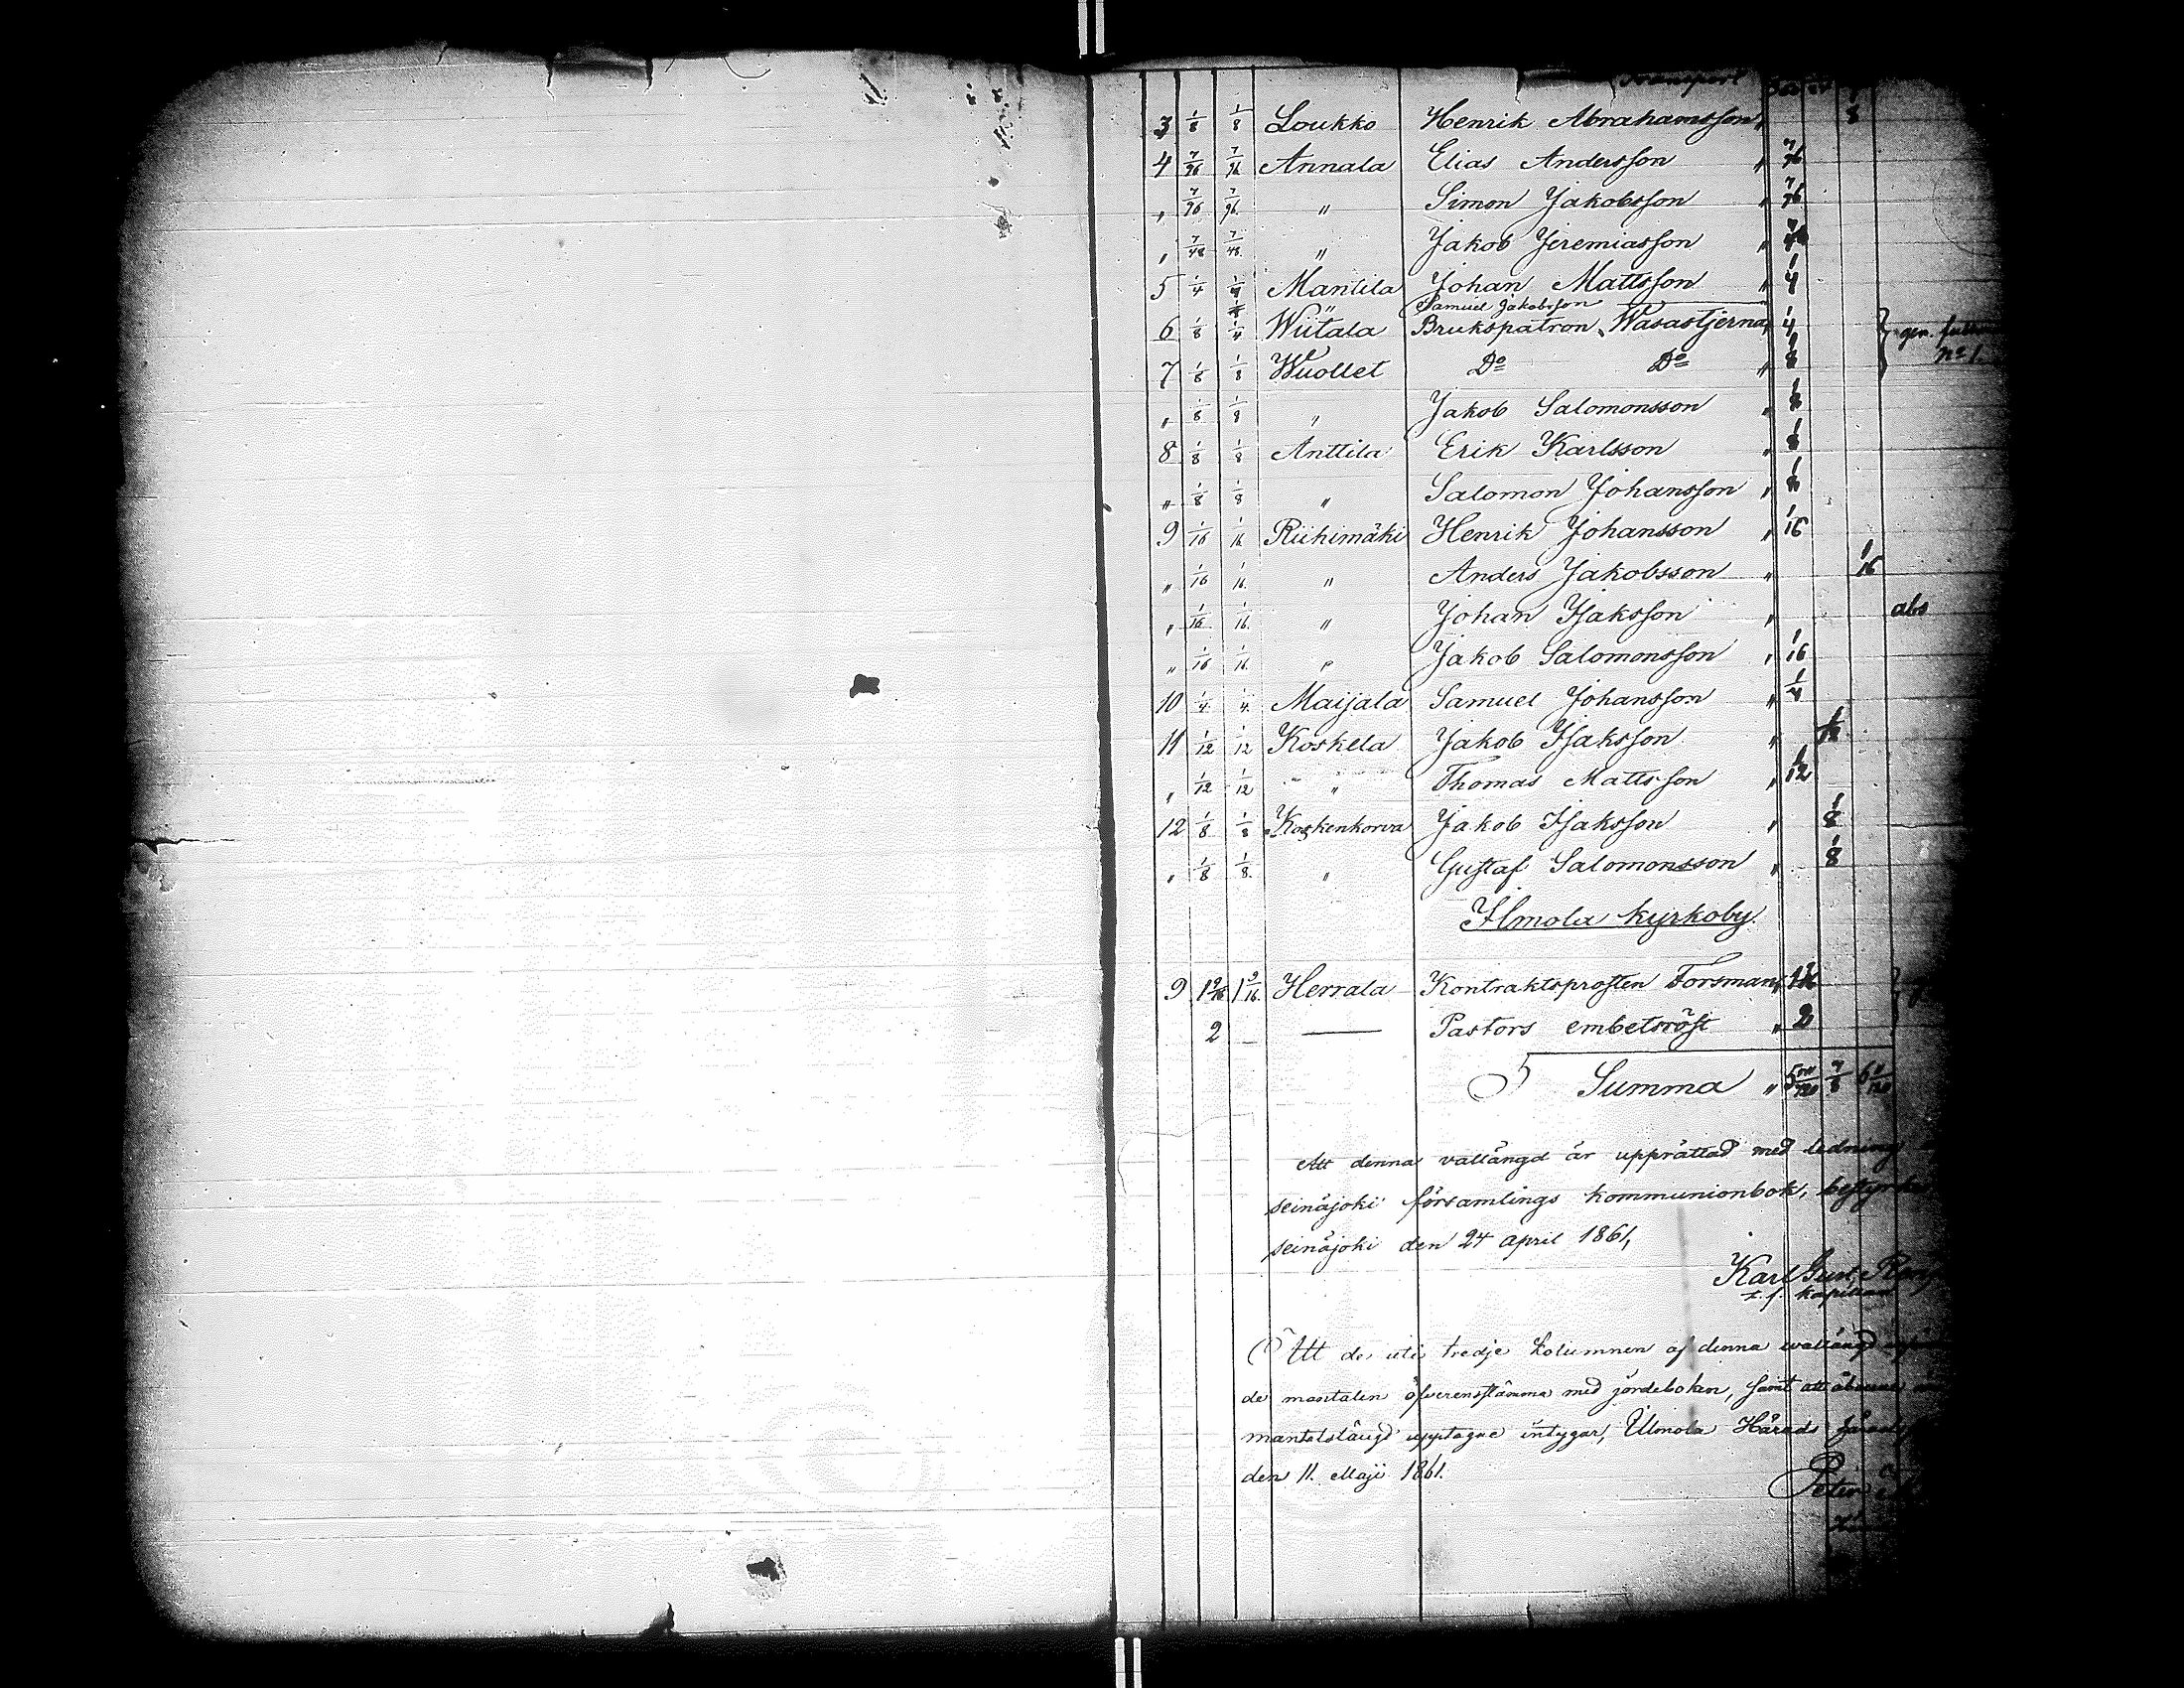 Transport
3 1/8 1/8 Loukko Henrik Abrahamsson " 1/8
4 7/96 7/96 Annala Elias Andersson " 7/96
" 7/96 7/96 " Simon Jakobsson " 7/96
" 7/48 7/48 " Jakob Jeremiasson " 7/48
5 1/4 1/4 Mantila Johan Mattsson " 1/4
1/8 " Samuel Jakobsson
6 1/8 1/4 Wiitala Brukspatron Wasastjerna " 1/4 gen.
7 1/8 1/8 Wuollet Do Do " 1/8 no 1.
" 1/8 1/8 " Jakob Salomonsson " 1/8
8 1/8 1/8 Anttila Erik Karlsson " 1/8
" 1/8 1/8 " Salomon Johansson " 1/8
9 1/16 1/16 Riihimäki Henrik Johansson " 1/16
" 1/16 1/16 " Anders Jakobsson " 1/16
" 1/16 1/16 " Johan Isaksson " abs
" 1/16 1/16 " Jakob Salomonsson " 1/16
10 1/4 1/4 Maijala Samuel Johansson " 1/4
11 1/12 1/12 Koskela Jakob Isaksson " 1/12
" 1/12 1/12 " Thomas Mattsson " 1/12
12 1/8 1/8 Koskenkorva Jakob Isaksson " 1/8
" 1/8 1/8 " Gustaf Salomonsson " 1/8
Ilmola kyrkoby.
9 1 9/16 1 9/16 Herrala Kontraktsprosten Forsman "
2 — Pastors embetsröst " 2
Summa " 7/8
Att denna vallängd är upprättad med ledning
seinäjoki församlings kommunionbok, bestyrkes
seinäjoki den 24 april 1861,
Karl Gust.
t. f. kapellan
Att de uti tredje kolumnen af denna vallängd
de mantalen öfverensstämma med jordeboken, samt att åboerne
mantalslängd upptagne intygar, Ilmola Härads
den 11. Maji 1861.
Peter